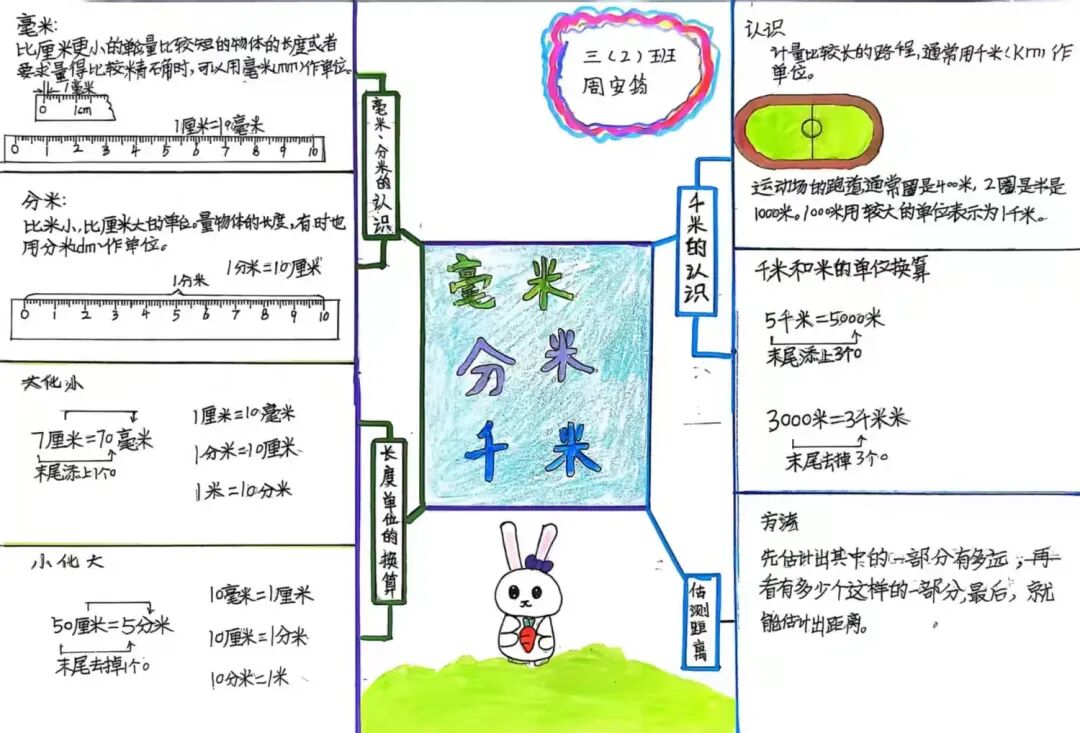 毫米:
比厘米更小的单位,量比较短的物体的长度或者
要求量得比较精确时,可以用毫米(mm)作单位。
1毫米
0 1cm
1厘米=10毫米
0 1 2 3 4 5 6 7 8 9 10
分米:
比米小,比厘米大的单位。量物体的长度,有时也
用分米dm作单位。
1分米=10厘米
1分米
0 1 2 3 4 5 6 7 8 9 10
大化小
7厘米=70毫米
末尾添上1个0
1厘米=10毫米
1分米=10厘米
1米=10分米
小化大
50厘米=5分米
末尾去掉1个0
10毫米=1厘米
10厘米=1分米
10分米=1米
毫米、分米的认识
长度单位的换算
三(2)班
毫米
分米
千米
千米的认识
估测距离
认识
计量比较长的路程,通常用千米(Km)作
单位。
运动场的跑道,通常1圈是400米,2圈半是
1000米。1000米用较大的单位表示为1千米。
千米和米的单位换算
5千米=5000米
末尾添上3个0
3000米=3千米米
末尾去掉3个0
方法
先估计出其中的一部分有多远,再
看有多少个这样的一部分,最后,就
能估计出距离。